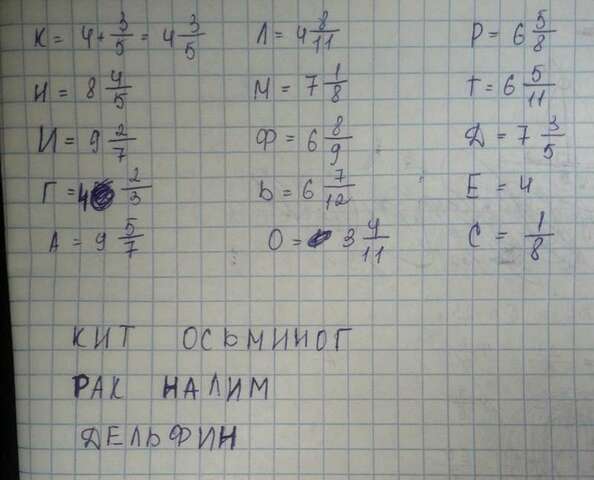 К = 4 + 3/5 = 4 3/5 Л = 4 8/11 Р = 6 5/8
Н = 8 4/5 М = 7 1/8 Т = 6 5/11
И = 9 2/7 Ф = 6 8/9 Д = 7 3/5
Г = 4 2/3 Ь = 6 7/12 Е = 4
А = 9 5/7 О = 3 4/11 С = 1/8
КИТ ОСЬМИНОГ
РАК НАЛИМ
ДЕЛЬФИН